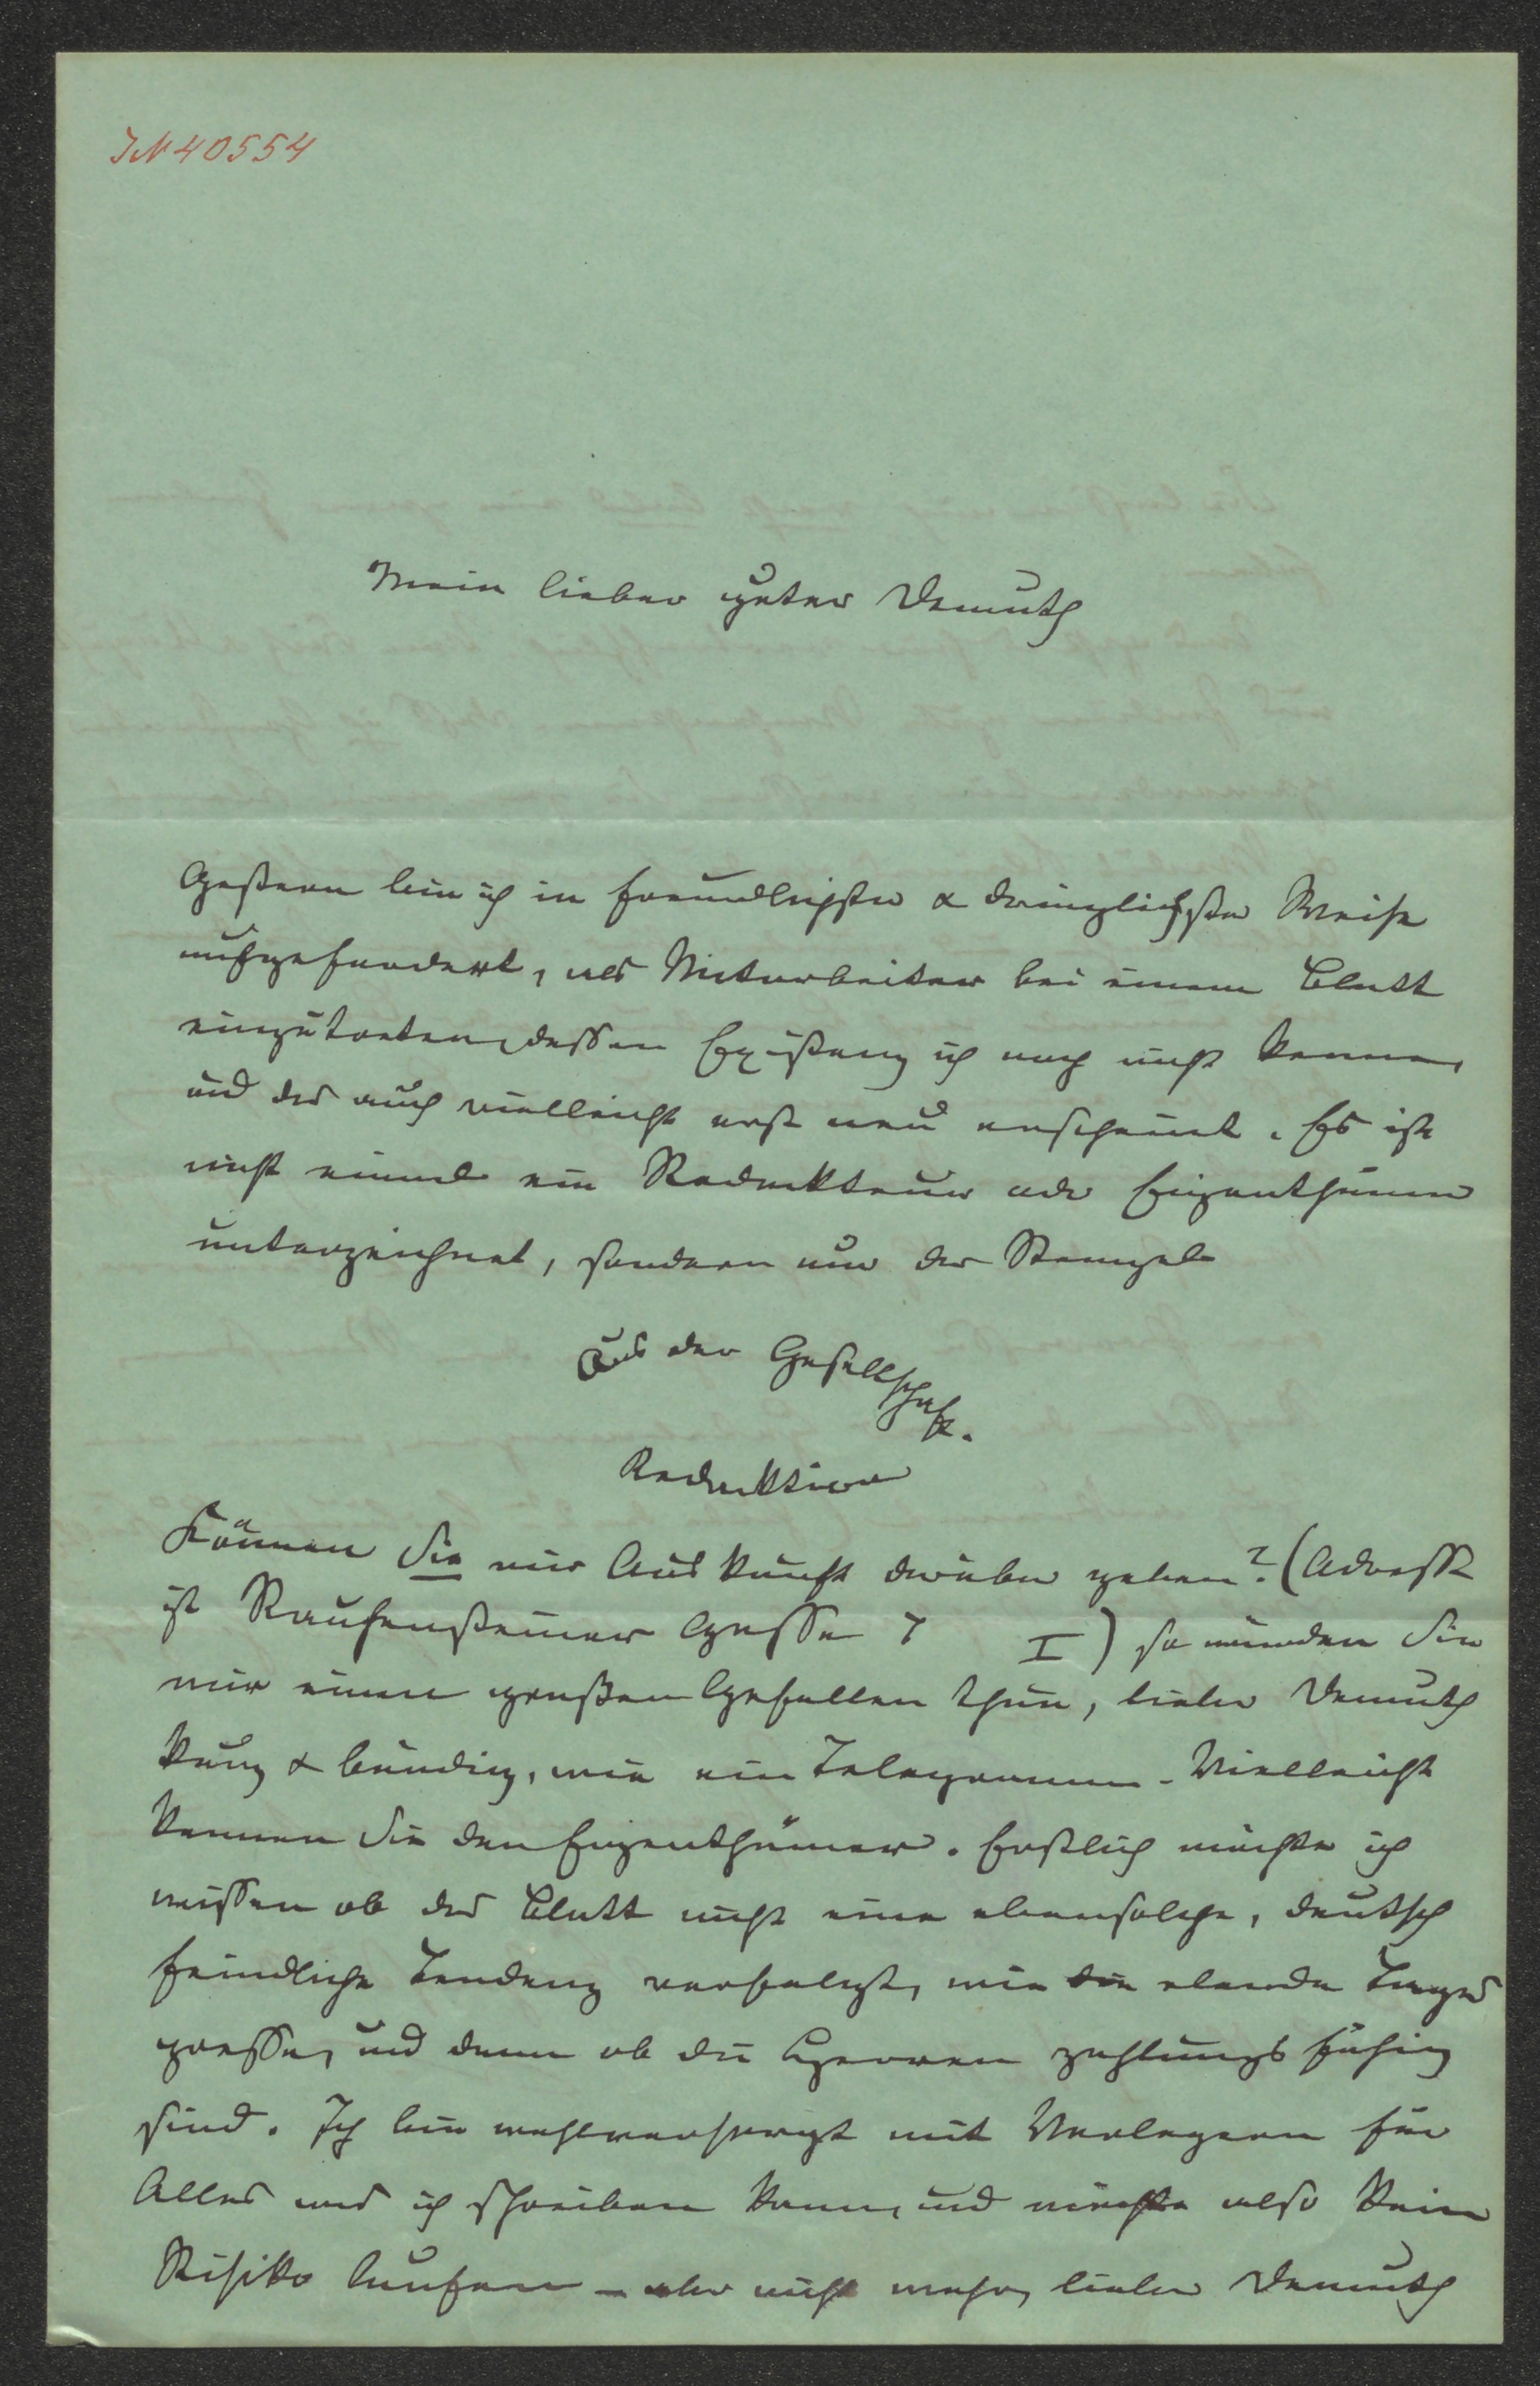 JN 40554
Mein lieber guter Demuth
Gestern bin ich in freundlichster & dringlichster Weise
aufgefordert, als Mitarbeiter bei einem Blatt
einzutreten, dessen Existenz ich noch nicht kenne,
und das auch vielleicht erst neu erscheint. Es ist
nicht einmal ein Redakteur oder Eigenthümer
unterzeichnet, sondern nur der Stempel
Aus der Gesellschaft.
Redaktion
Können Sie mir Auskunft darüber geben? (Adresse
ist Rauhensteiner Gasse 7 I) so würden Sie
mir einen großen Gefallen thun, lieber Demuth
kurz & bündig, wie ein Telegramm. Vielleicht
kennen Sie den Eigenthümer. Erstlich möchte ich
wissen ob das Blatt nicht eine ebensolche, deutsch
feindliche Tendenz verfolgt, wie die elende Tages
presse, und dann ob die Herren zahlungsfähig
sind. Ich bin wohlversorgt mit Verlegern für
Alles was ich schreiben kann, und möchte also kein
Risiko laufen – aber nicht wahr, lieber Demuth